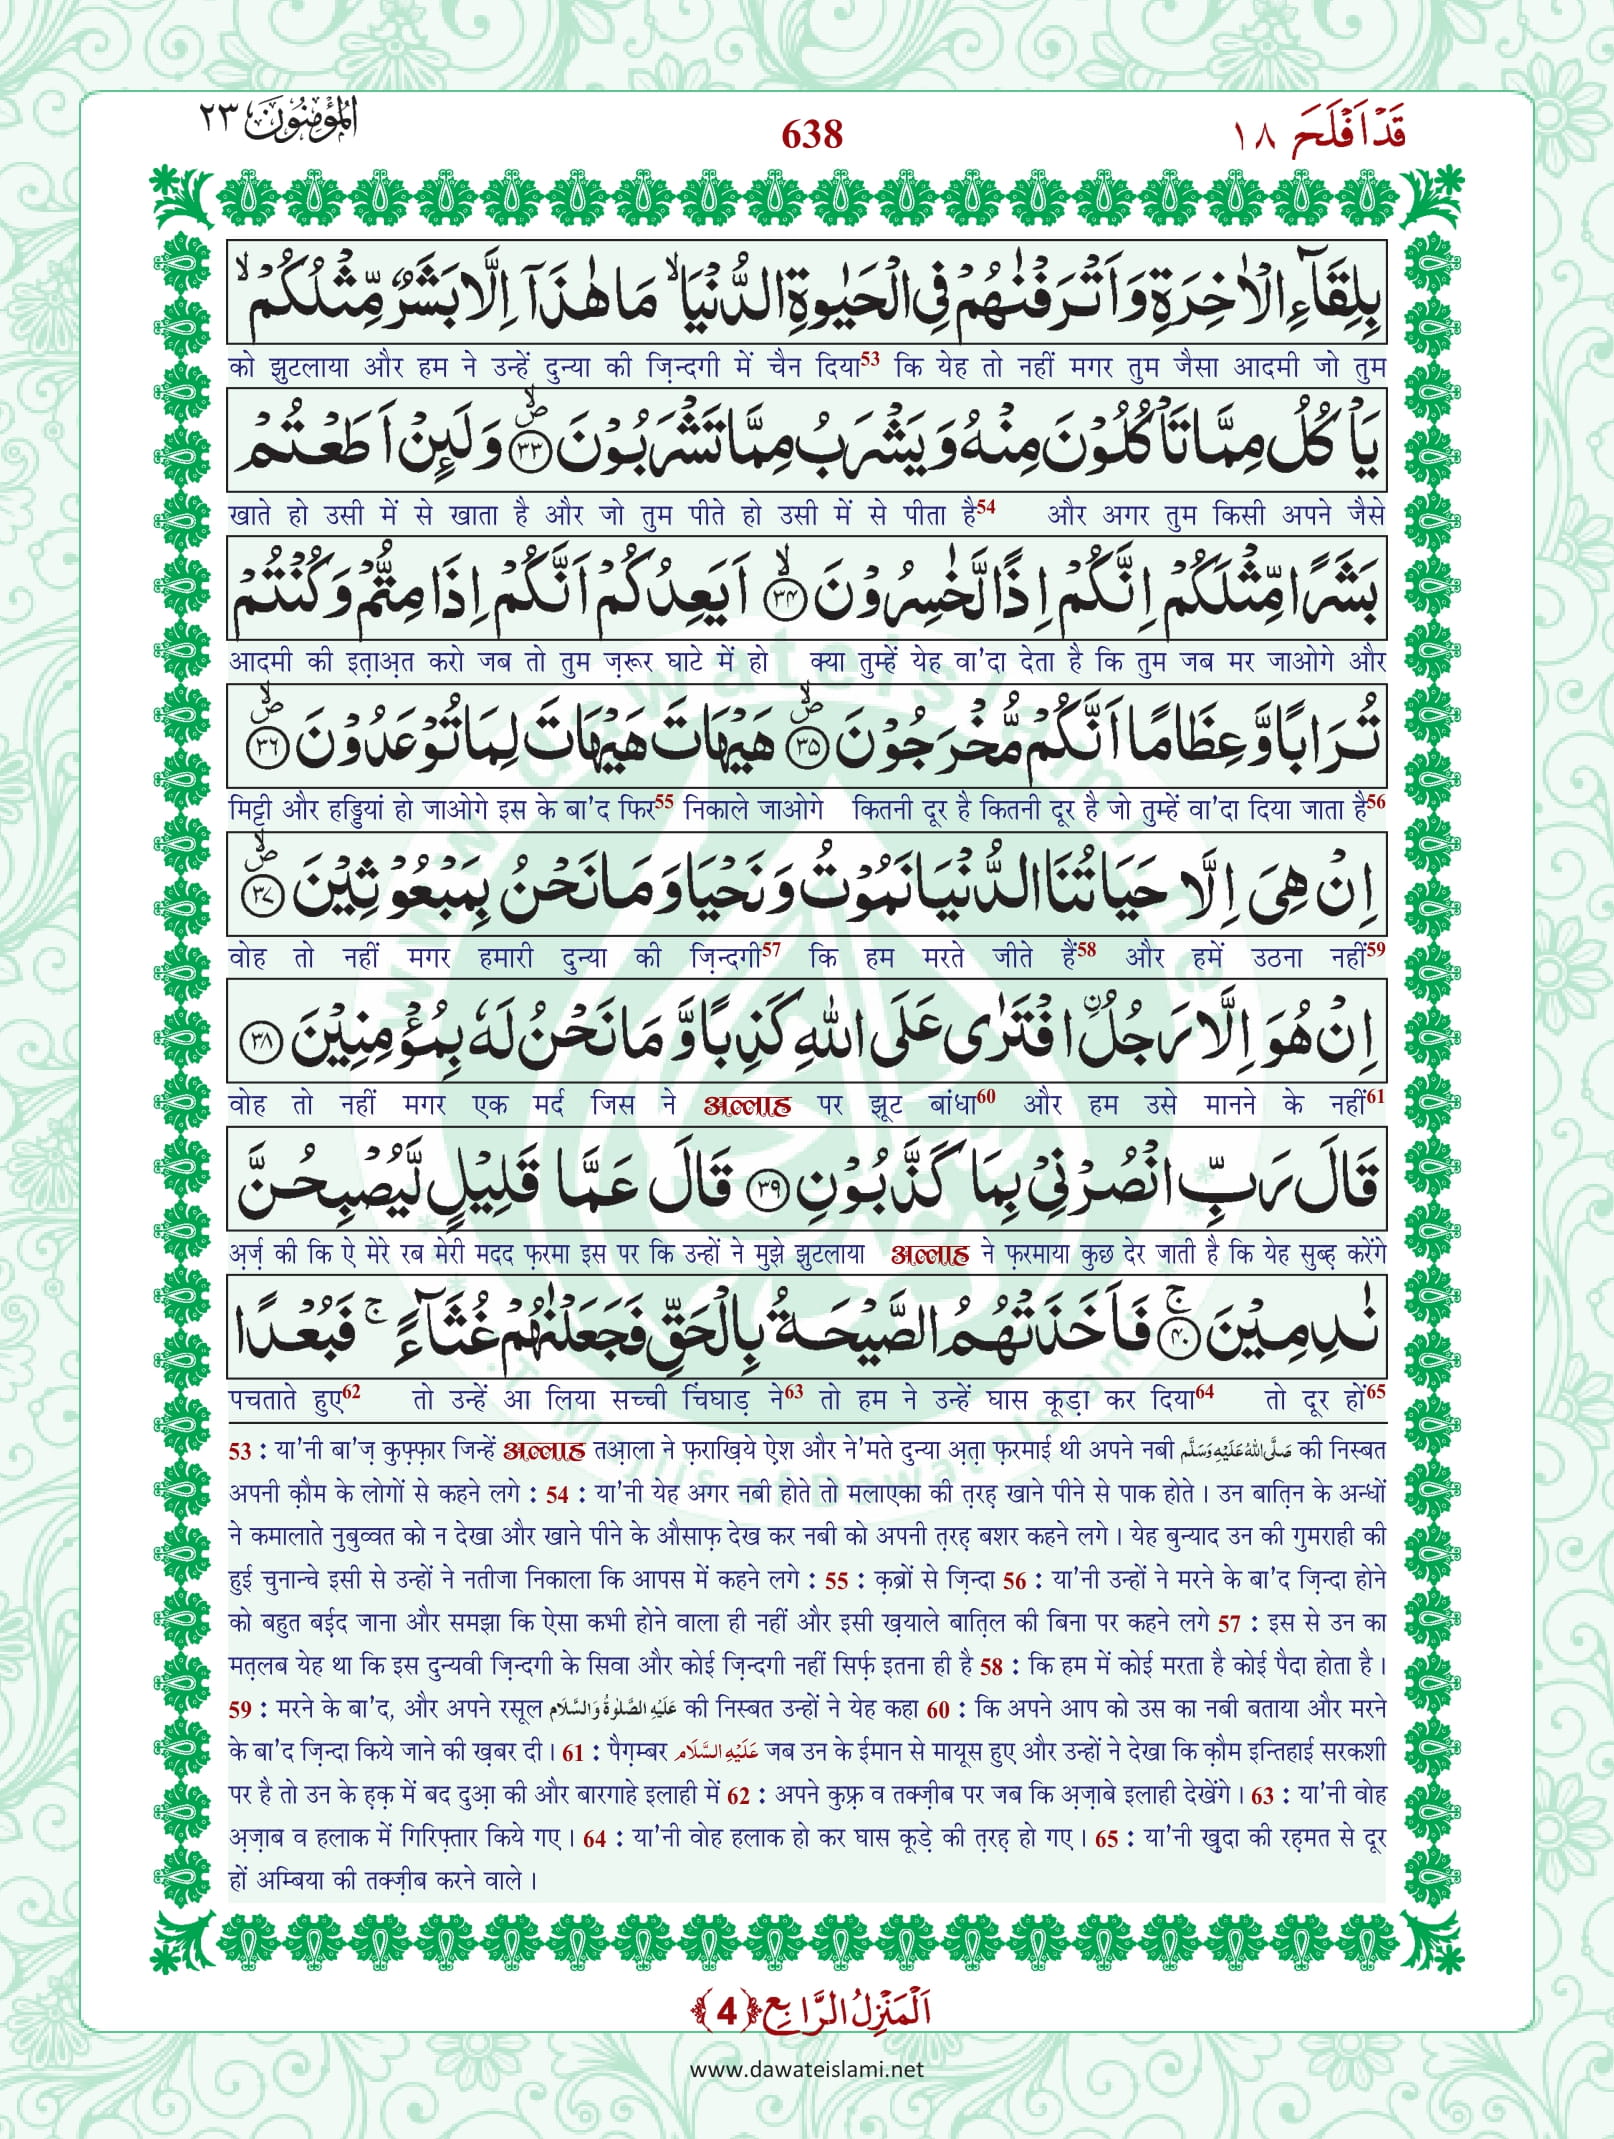 اَلْمُؤْمِنُوْنَ ٢٣
638
قَدْ اَفْلَحَ ١٨
بِلِقَآءِ الْاٰخِرَةِ وَ اَتْرَفْنٰهُمْ فِی الْحَیٰوةِ الدُّنْیَا ۙ مَا هٰذَاۤ اِلَّا بَشَرٌ مِّثْلُكُمْ ۙ
को झुटलाया और हम ने उन्हें दुन्या की ज़िन्दगी में चैन दिया53 कि येह तो नहीं मगर तुम जैसा आदमी जो तुम
یَاْكُلُ مِمَّا تَاْكُلُوْنَ مِنْهُ وَ یَشْرَبُ مِمَّا تَشْرَبُوْنَ ﴿٣٣﴾ وَ لَىِٕنْ اَطَعْتُمْ
खाते हो उसी में से खाता है और जो तुम पीते हो उसी में से पीता है54 और अगर तुम किसी अपने जैसे
بَشَرًا مِّثْلَكُمْ اِنَّكُمْ اِذًا لَّخٰسِرُوْنَ ﴿٣٤﴾ اَیَعِدُكُمْ اَنَّكُمْ اِذَا مِتُّمْ وَ كُنْتُمْ
आदमी की इता़अ़त करो जब तो तुम ज़रूर घाटे में हो क्या तुम्हें येह वा'दा देता है कि तुम जब मर जाओगे और
تُرَابًا وَّ عِظَامًا اَنَّكُمْ مُّخْرَجُوْنَ ﴿٣٥﴾ هَیْهَاتَ هَیْهَاتَ لِمَا تُوْعَدُوْنَ ﴿٣٦﴾
मिट्टी और हड्डियां हो जाओगे इस के बा'द फिर55 निकाले जाओगे कितनी दूर है कितनी दूर है जो तुम्हें वा'दा दिया जाता है56
اِنْ هِیَ اِلَّا حَیَاتُنَا الدُّنْیَا نَمُوْتُ وَ نَحْیَا وَ مَا نَحْنُ بِمَبْعُوْثِیْنَ ﴿٣٧﴾
वोह तो नहीं मगर हमारी दुन्या की ज़िन्दगी57 कि हम मरते जीते हैं58 और हमें उठना नहीं59
اِنْ هُوَ اِلَّا رَجُلُ ۨافْتَرٰى عَلَى اللّٰهِ كَذِبًا وَّ مَا نَحْنُ لَهٗ بِمُؤْمِنِیْنَ ﴿٣٨﴾
वोह तो नहीं मगर एक मर्द जिस ने अल्लाह पर झूट बांधा60 और हम उसे मानने के नहीं61
قَالَ رَبِّ انْصُرْنِیْ بِمَا كَذَّبُوْنِ ﴿٣٩﴾ قَالَ عَمَّا قَلِیْلٍ لَّیُصْبِحُنَّ
अ़र्ज़ की कि ऐ मेरे रब मेरी मदद फ़रमा इस पर कि उन्हों ने मुझे झुटलाया अल्लाह ने फ़रमाया कुछ देर जाती है कि येह सुब्ह़ करेंगे
نٰدِمِیْنَ ﴿٤٠﴾ۚ فَاَخَذَتْهُمُ الصَّیْحَةُ بِالْحَقِّ فَجَعَلْنٰهُمْ غُثَآءً ۚ فَبُعْدًا
पचताते हुए62 तो उन्हें आ लिया सच्ची चिंघाड़ ने63 तो हम ने उन्हें घास कूड़ा कर दिया64 तो दूर हों65
53 : या'नी बा'ज़ कुफ़्फ़ार जिन्हें अल्लाह तआ़ला ने फ़राख़िये ऐ़श और ने'मते दुन्या अ़ता़ फ़रमाई थी अपने नबी صَلَّى اللهُ عَلَيْهِ وَسَلَّم की निस्बत
अपनी क़ौम के लोगों से कहने लगे : 54 : या'नी येह अगर नबी होते तो मलाएका की त़रह़ खाने पीने से पाक होते । उन बाति़न के अन्धों
ने कमालाते नुबुव्वत को न देखा और खाने पीने के औसाफ़ देख कर नबी को अपनी त़रह़ बशर कहने लगे । येह बुन्याद उन की गुमराही की
हुई चुनान्चे इसी से उन्हों ने नतीजा निकाला कि आपस में कहने लगे : 55 : क़ब्रों से ज़िन्दा 56 : या'नी उन्हों ने मरने के बा'द ज़िन्दा होने
को बहुत बई़द जाना और समझा कि ऐसा कभी होने वाला ही नहीं और इसी ख़याले बाति़ल की बिना पर कहने लगे 57 : इस से उन का
मत़लब येह था कि इस दुन्यवी ज़िन्दगी के सिवा और कोई ज़िन्दगी नहीं सिर्फ़ इतना ही है 58 : कि हम में कोई मरता है कोई पैदा होता है ।
59 : मरने के बा'द, और अपने रसूल عَلَيْهِ الصَّلٰوةُ وَالسَّلَام की निस्बत उन्हों ने येह कहा 60 : कि अपने आप को उस का नबी बताया और मरने
के बा'द ज़िन्दा किये जाने की ख़बर दी । 61 : पैग़म्बर عَلَيْهِ السَّلَام जब उन के ईमान से मायूस हुए और उन्हों ने देखा कि क़ौम इन्तिहाई सरकशी
पर है तो उन के ह़क़ में बद दुआ़ की और बारगाहे इलाही में 62 : अपने कुफ़्र व तक्ज़ीब पर जब कि अ़ज़ाबे इलाही देखेंगे । 63 : या'नी वोह
अ़ज़ाब व हलाक में गिरिफ़्तार किये गए । 64 : या'नी वोह हलाक हो कर घास कूड़े की त़रह़ हो गए । 65 : या'नी ख़ुदा की रह़मत से दूर
हों अम्बिया की तक्ज़ीब करने वाले ।
اَلْمَنْزِلُ الرَّابِع ﴿4﴾
www.dawateislami.net